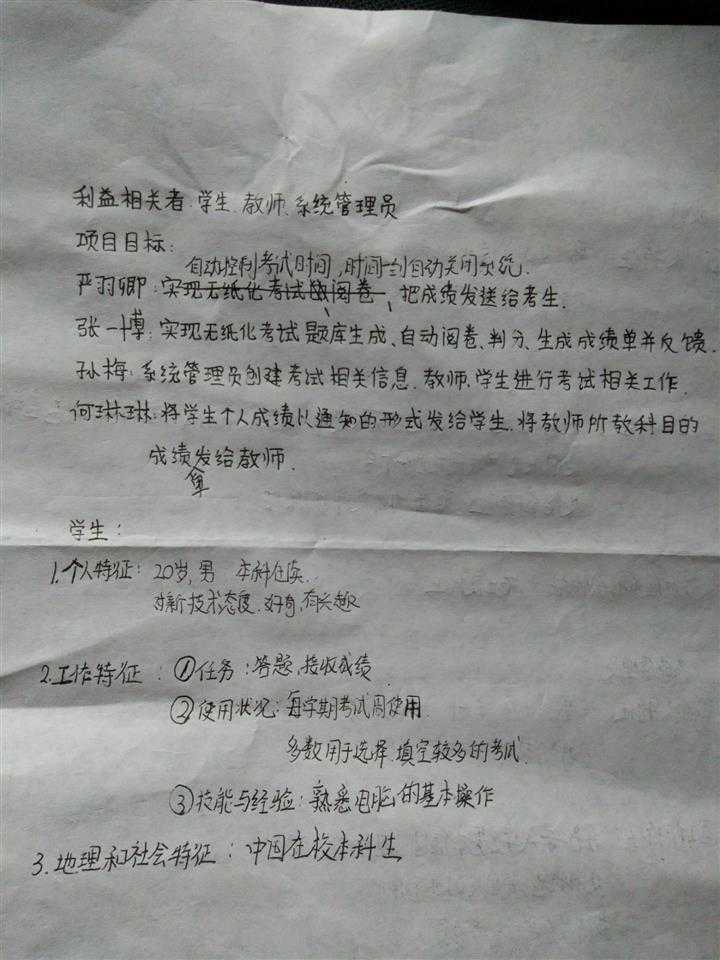 利益相关者:学生、教师、系统管理员
项目目标:
自动控制考试时间,时间一到自动关闭系统.
严羽卿:实现无纸化考试 阅卷、把成绩发送给考生.
张一博:实现无纸化考试、题库生成、自动阅卷、判分、生成成绩单并反馈.
孙梅:系统管理员创建考试相关信息.教师、学生进行考试相关工作.
何琳琳:将学生个人成绩以通知的形式发给学生.将教师所教科目的
成绩单发给教师.
学生:
1.个人特征:20岁,男 本科在读.
对新技术态度.好奇,有兴趣
2.工作特征:①任务:答题,接收成绩
②使用状况:每学期考试周使用
多数用于选择、填空较多的考试.
③技能与经验:熟悉电脑的基本操作
3.地理和社会特征:中国在校本科生